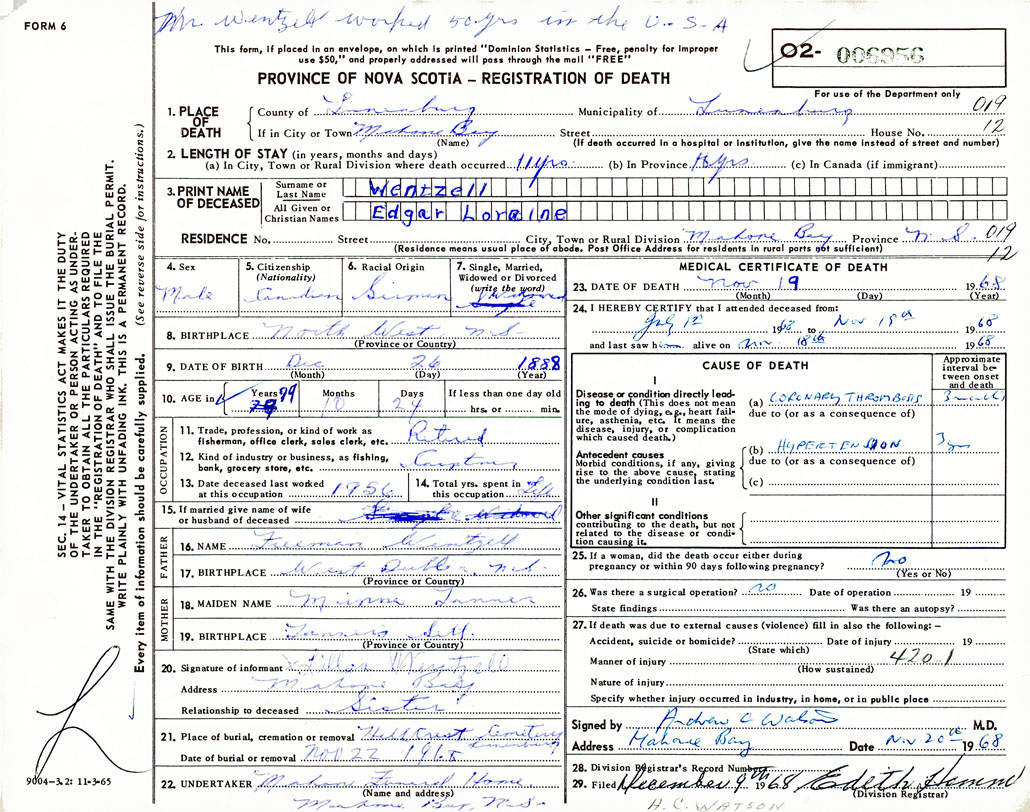 Mr. Wentzell worked 50 yrs in the U-S-A
FORM 6
This form, if placed in an envelope, on which is printed "Dominion Statistics – Free, penalty for improper
use $50," and properly addressed will pass through the mail "FREE"
PROVINCE OF NOVA SCOTIA – REGISTRATION OF DEATH
02- 006956
For use of the Department only
019
12
1. PLACE OF DEATH
County of Lunenburg Municipality of Lunenburg
If in City or Town Mahone Bay Street House No.
(Name) (If death occurred in a hospital or institution, give the name instead of street and number)
2. LENGTH OF STAY (in years, months and days)
(a) In City, Town or Rural Division where death occurred 11 yrs (b) In Province yrs (c) In Canada (if immigrant)
3. PRINT NAME OF DECEASED
Surname or Last Name Wentzell
All Given or Christian Names Edgar Loraine
RESIDENCE No. Street City, Town or Rural Division Mahone Bay Province N.S. 019
(Residence means usual place of abode. Post Office Address for residents in rural parts not sufficient) 12
4. Sex Male
5. Citizenship (Nationality) Canadian
6. Racial Origin German
7. Single, Married, Widowed or Divorced (write the word)
8. BIRTHPLACE North West N.S.
(Province or Country)
9. DATE OF BIRTH Dec 26 1888
(Month) (Day) (Year)
10. AGE in Years 79 Months 10 Days 24 If less than one day old hrs. or min.
OCCUPATION
11. Trade, profession, or kind of work as fisherman, office clerk, sales clerk, etc. Retired
12. Kind of industry or business, as fishing, bank, grocery store, etc.
13. Date deceased last worked at this occupation 1956
14. Total yrs. spent in this occupation Life
15. If married give name of wife or husband of deceased
FATHER
16. NAME Freeman Wentzell
17. BIRTHPLACE West Dublin, N.S.
(Province or Country)
MOTHER
18. MAIDEN NAME Minne Tanner
19. BIRTHPLACE Tanners Sett.
(Province or Country)
20. Signature of informant Wentzell
Address Mahone Bay
Relationship to deceased Sister
21. Place of burial, cremation or removal Hillcrest Cemetery Lunenburg
Date of burial or removal Nov 22 1968
22. UNDERTAKER Mahone Funeral Home
(Name and address)
Mahone Bay, N.S.
MEDICAL CERTIFICATE OF DEATH
23. DATE OF DEATH Nov 19 1968
(Month) (Day) (Year)
24. I HEREBY CERTIFY that I attended deceased from:
July 1st 1968 to Nov 19th 1968
and last saw him alive on Nov. 18th 1968
CAUSE OF DEATH
Approximate interval between onset and death
I
Disease or condition directly leading to death (This does not mean the mode of dying, e.g., heart failure, asthenia, etc. It means the disease, injury, or complication which caused death.)
(a) CORONARY THROMBOSIS
due to (or as a consequence of)
(b) HYPERTENSION 3 yrs
due to (or as a consequence of)
(c)
Antecedent causes
Morbid conditions, if any, giving rise to the above cause, stating the underlying condition last.
II
Other significant conditions
contributing to the death, but not related to the disease or condition causing it.
25. If a woman, did the death occur either during
pregnancy or within 90 days following pregnancy? No
(Yes or No)
26. Was there a surgical operation? no Date of operation 19
State findings Was there an autopsy?
27. If death was due to external causes (violence) fill in also the following: –
Accident, suicide or homicide? Date of injury 19
(State which)
Manner of injury 420.1
(How sustained)
Nature of injury
Specify whether injury occurred in industry, in home, or in public place
Signed by Andrew C Watson M.D.
Address Mahone Bay Date Nov 20th 1968
28. Division Registrar's Record Number
29. Filed December 9th 1968 Edith
(Division Registrar)
H. C. WATSON
SEC. 14 – VITAL STATISTICS ACT MAKES IT THE DUTY
OF THE UNDERTAKER OR PERSON ACTING AS UNDER-
TAKER TO OBTAIN ALL THE PARTICULARS REQUIRED
IN THE "REGISTRATION OF DEATH" AND TO FILE THE
SAME WITH THE DIVISION REGISTRAR WHO SHALL ISSUE THE BURIAL PERMIT.
WRITE PLAINLY WITH UNFADING INK. THIS IS A PERMANENT RECORD.
Every item of information should be carefully supplied. (See reverse side for instructions.)
9004-3.2: 11-3-65